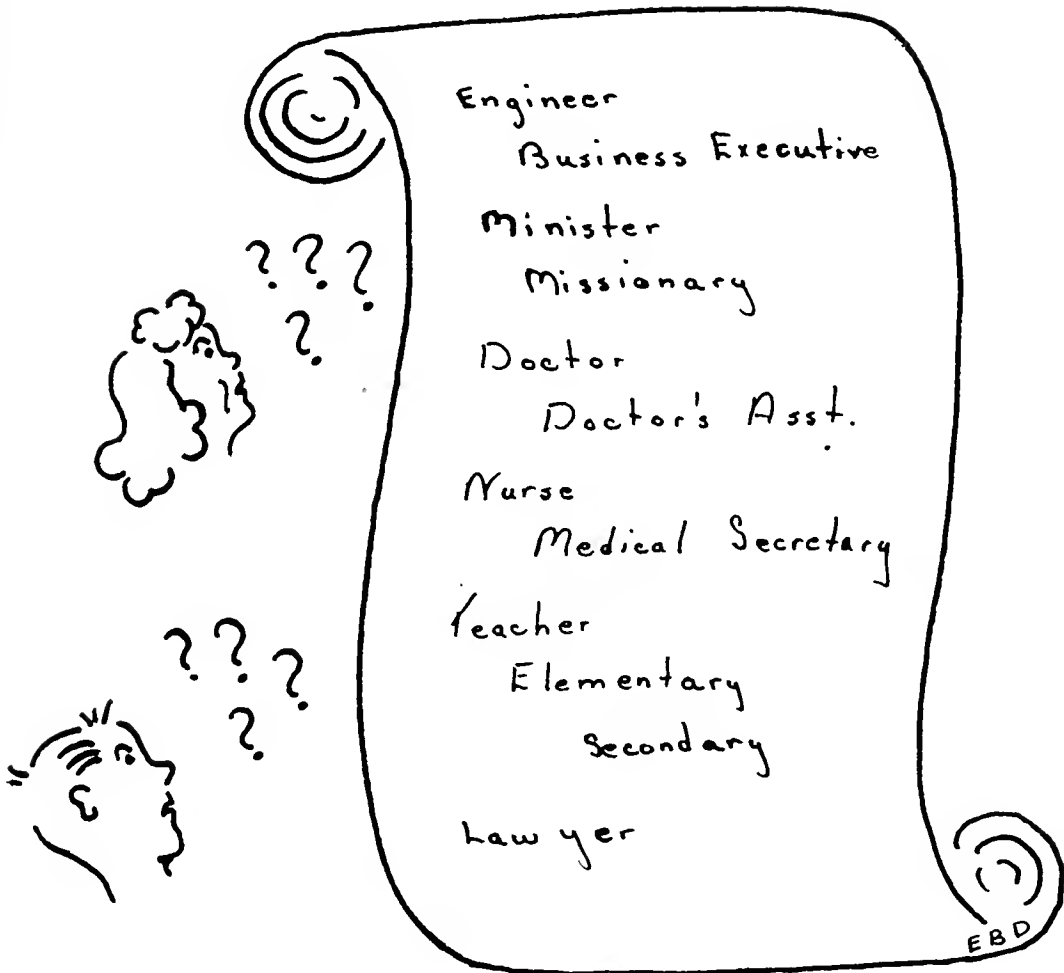 Engineer
Business Executive
? ? ?
Minister
Missionary
?
Doctor
Doctor's Asst.
Nurse
Medical Secretary
Teacher
? ? ?
Elementary
?
Secondary
Lawyer
EBD